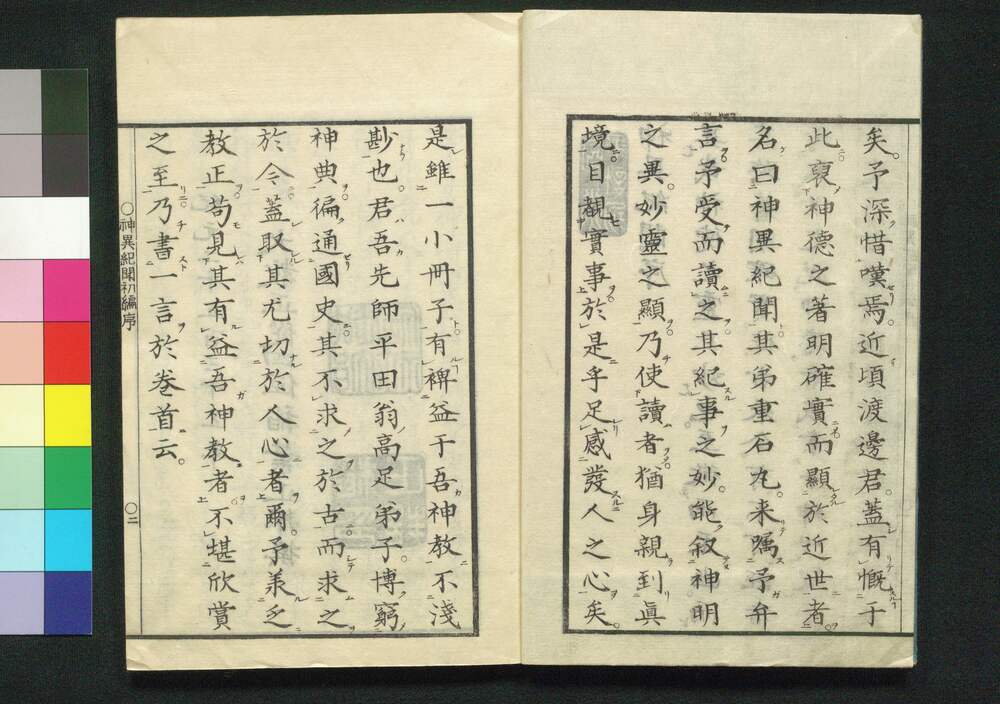 矣。予深惜嘆焉。近頃渡邊君。蓋有慨于
此裒神德之著明確實而顯於近世者。
名曰神異紀聞。其弟重石丸。来嘱予弁
言。予受而讀之。其紀事之妙。能叙神明
之異。妙靈之顯。乃使讀者猶身親到眞
境。目覩實事。於是乎足感發人之心矣。
是雖一小冊子。有裨益于吾神教不淺
尠也。君吾先師平田翁高足弟子。博窮
神典。徧通國史。其不求之於古。而求之
於今。蓋取其尤切於人心者爾。予羕乏
教正。苟見其有益吾神教者。不堪欣賞
之至。乃書一言於巻首云。
○神異紀聞初編序 ○二